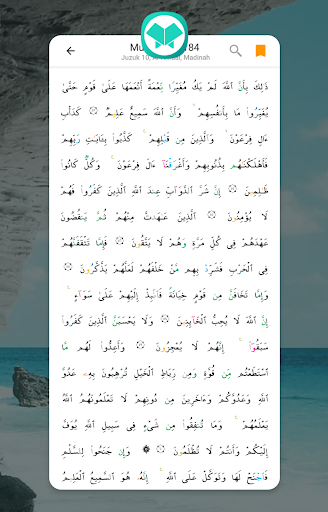 Mu 184
Juzuk 10, Madinah
ذَٰلِكَ بِأَنَّ ٱللَّهَ لَمْ يَكُ مُغَيِّرًا نِّعْمَةً أَنْعَمَهَا عَلَىٰ قَوْمٍ حَتَّىٰ
يُغَيِّرُوا۟ مَا بِأَنفُسِهِمْ ۙ وَأَنَّ ٱللَّهَ سَمِيعٌ عَلِيمٌ ۞ كَدَأْبِ
ءَالِ فِرْعَوْنَ ۙ وَٱلَّذِينَ مِن قَبْلِهِمْ ۚ كَذَّبُوا۟ بِـَٔايَـٰتِ رَبِّهِمْ
فَأَهْلَكْنَـٰهُم بِذُنُوبِهِمْ وَأَغْرَقْنَآ ءَالَ فِرْعَوْنَ ۚ وَكُلٌّ كَانُوا۟
ظَـٰلِمِينَ ۞ إِنَّ شَرَّ ٱلدَّوَآبِّ عِندَ ٱللَّهِ ٱلَّذِينَ كَفَرُوا۟ فَهُمْ
لَا يُؤْمِنُونَ ۞ ٱلَّذِينَ عَـٰهَدتَّ مِنْهُمْ ثُمَّ يَنقُضُونَ
عَهْدَهُمْ فِى كُلِّ مَرَّةٍ وَهُمْ لَا يَتَّقُونَ ۞ فَإِمَّا تَثْقَفَنَّهُمْ
فِى ٱلْحَرْبِ فَشَرِّدْ بِهِم مَّنْ خَلْفَهُمْ لَعَلَّهُمْ يَذَّكَّرُونَ ۞
وَإِمَّا تَخَافَنَّ مِن قَوْمٍ خِيَانَةً فَٱنۢبِذْ إِلَيْهِمْ عَلَىٰ سَوَآءٍ ۚ
إِنَّ ٱللَّهَ لَا يُحِبُّ ٱلْخَآئِنِينَ ۞ وَلَا يَحْسَبَنَّ ٱلَّذِينَ كَفَرُوا۟
سَبَقُوٓا۟ ۚ إِنَّهُمْ لَا يُعْجِزُونَ ۞ وَأَعِدُّوا۟ لَهُم مَّا
ٱسْتَطَعْتُم مِّن قُوَّةٍ وَمِن رِّبَاطِ ٱلْخَيْلِ تُرْهِبُونَ بِهِۦ عَدُوَّ
ٱللَّهِ وَعَدُوَّكُمْ وَءَاخَرِينَ مِن دُونِهِمْ لَا تَعْلَمُونَهُمُ ٱللَّهُ
يَعْلَمُهُمْ ۚ وَمَا تُنفِقُوا۟ مِن شَىْءٍ فِى سَبِيلِ ٱللَّهِ يُوَفَّ
إِلَيْكُمْ وَأَنتُمْ لَا تُظْلَمُونَ ۞ وَإِن جَنَحُوا۟ لِلسَّلْمِ
فَٱجْنَحْ لَهَا وَتَوَكَّلْ عَلَى ٱللَّهِ ۚ إِنَّهُۥ هُوَ ٱلسَّمِيعُ ٱلْعَلِيمُ